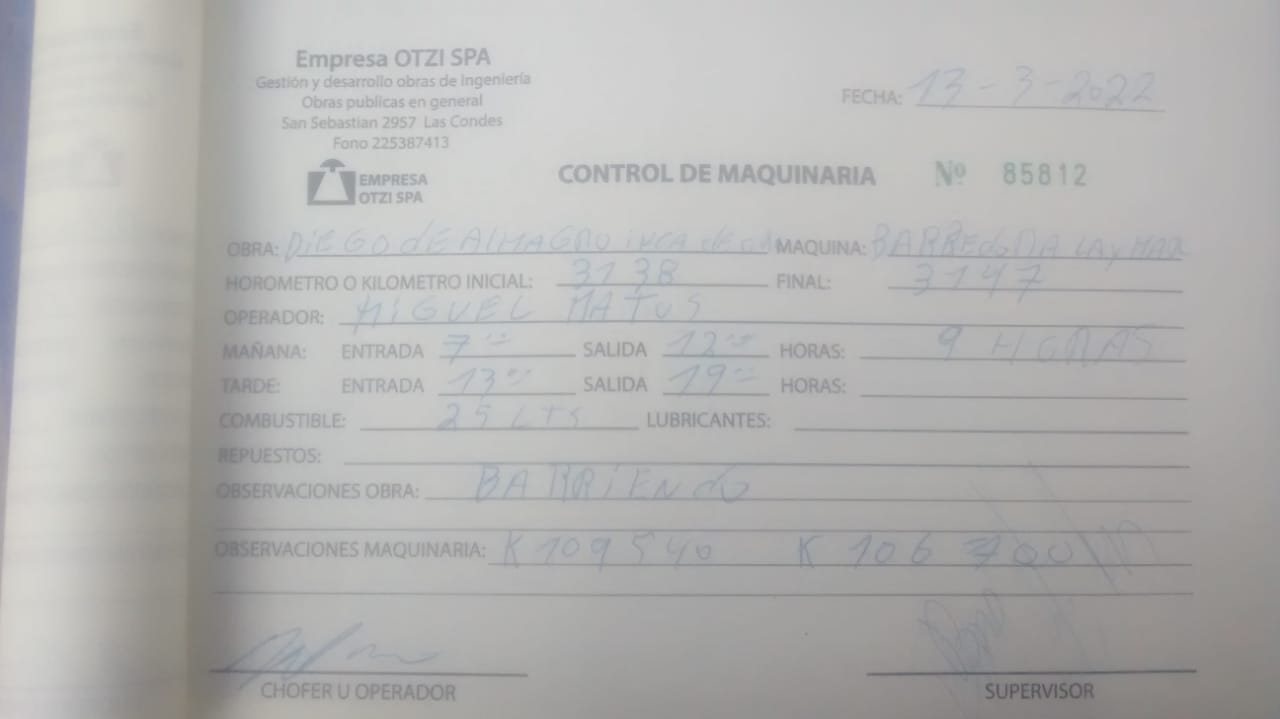 Empresa OTZI SPA
Gestión y desarrollo obras de Ingeniería
Obras publicas en general
San Sebastian 2957 Las Condes
Fono 225387413
FECHA: 13-3-2022
EMPRESA
OTZI SPA
CONTROL DE MAQUINARIA Nº 85812
OBRA: DiEGO dE AlMAGRO inca de MAQUINA: BARREdoRA
HOROMETRO O KILOMETRO INICIAL: 3138 FINAL: 3147
OPERADOR: MiGUEL MATUS
MAÑANA: ENTRADA 7⁰⁰ SALIDA 12⁰⁰ HORAS: 9 HORAS
TARDE: ENTRADA 13⁰⁰ SALIDA 19⁰⁰ HORAS:
COMBUSTIBLE: 25 LTS LUBRICANTES:
REPUESTOS:
OBSERVACIONES OBRA: BARRiENdO
OBSERVACIONES MAQUINARIA: K 109540 K 106 700
CHOFER U OPERADOR SUPERVISOR